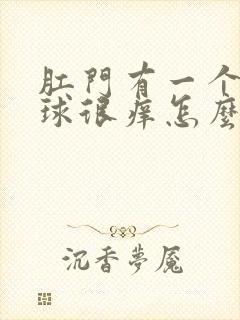 肛門有一个
球很痒怎麼
沉香夢魘